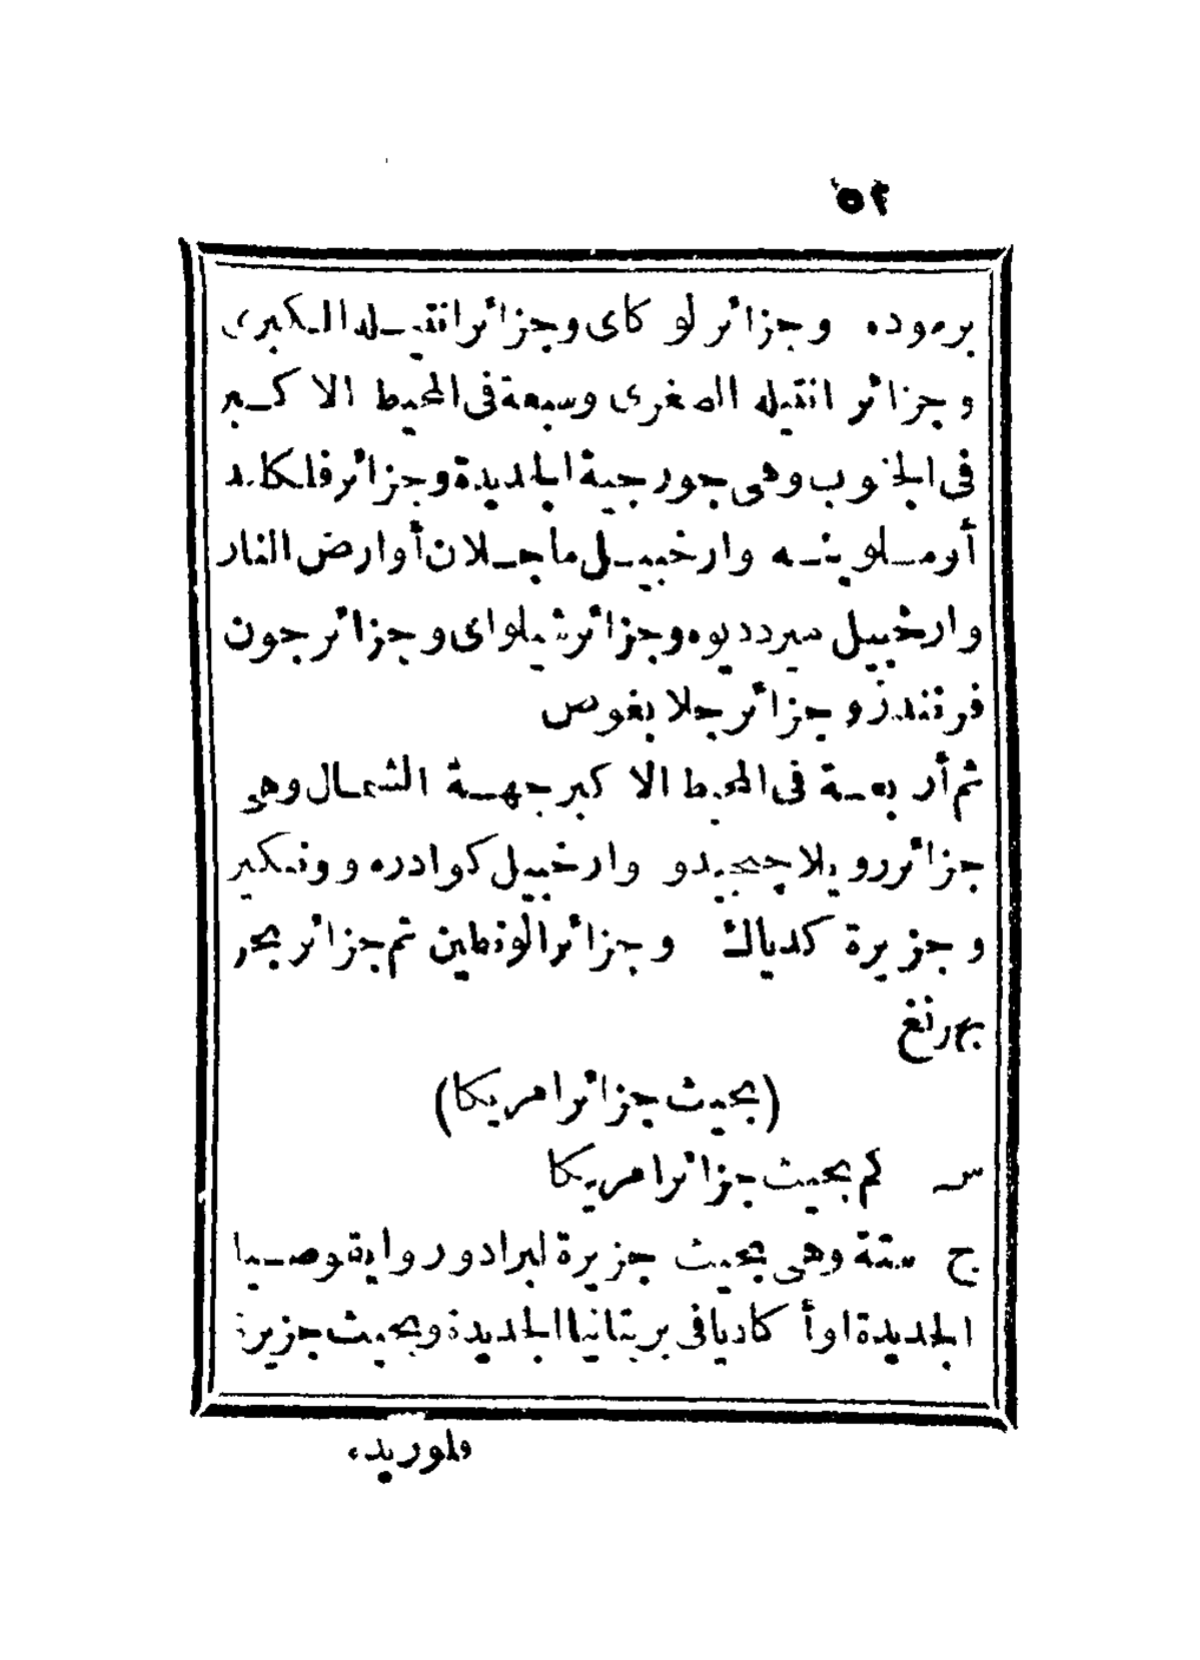 ٥٢
برموده وجزائر لوكاى وجزائر انتيله الكبرى
وجزائر انتيله الصغرى وسبعة فى المحيط الاكبر
فى الجنوب وهى جورجية الجديدة وجزائر فلكلاند
أو ملوينه وارخبيل ماجلان أو ارض النار
وارخبيل ميردديوه وجزائر شيلواى وجزائر جون
فرنندز وجزائر جلابغوس
ثم أربعة فى المحيط الاكبر جهة الشمال وهى
جزائر رويلاججيدو وارخبيل كوادره وونكبر
وجزيرة كدياك وجزائر الوتطين ثم جزائر بحر
بهرنغ
(بحيث جزائر امريكا)
س كم بحيث جزائر امريكا
ج ستة وهى بحيث جزيرة لبرادور وايقوصيا
الجديدة او أكاديا فى بريتانيا الجديدة وبحيث جزيرة
فلوريده